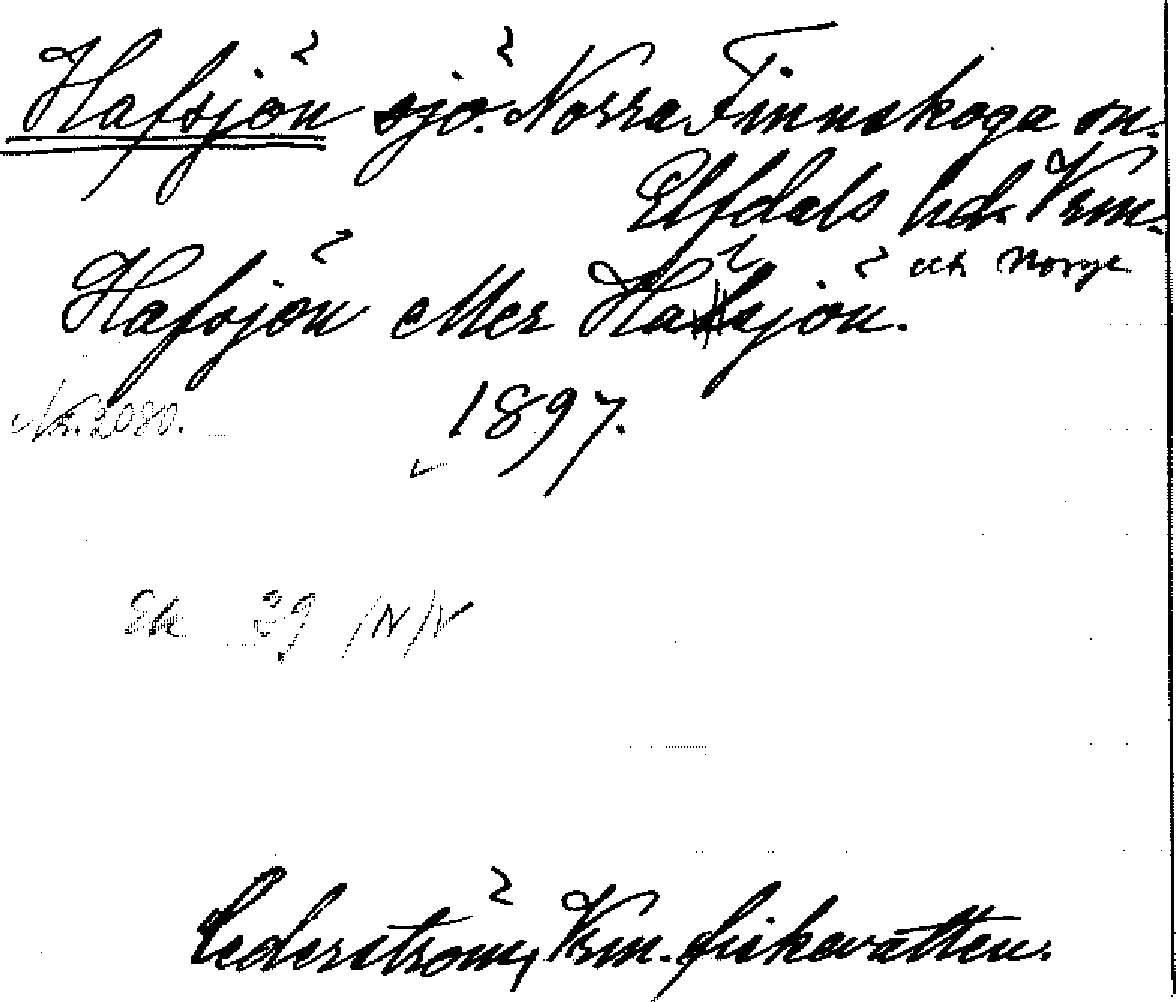 Hafsjön sjö. Norra Finnskoga sn.
Elfdals hd. Vrm.
och Norge
Hafsjön eller Hafsjön.
Nr. 2080.
1897.
Ek 29 /N/V
Cederström, Vrm. fiskevatten.